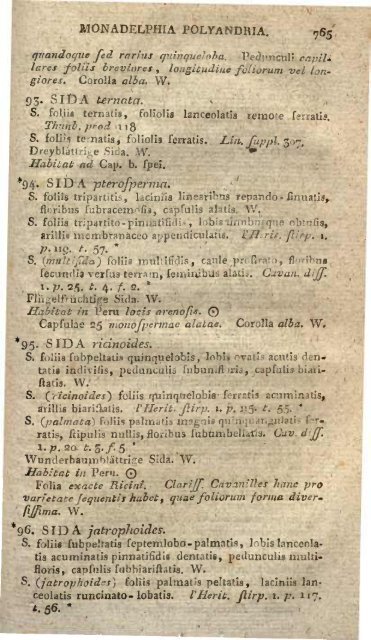 MONADELPHIA POLYANDRIA. 765
quandoque sed rarius quinqueloba. Pedunculi capil-
lares foliis breviores, longitudine foliorum vel lon-
giores. Corolla alba. W.
93. SIDA ternata.
S. foliis ternatis, foliolis lanceolatis remote serratis.
Thunb. prod 118
S. foliis ternatis, foliolis serratis. Lin. suppl. 307.
Dreyblättrige Sida. W.
Habitat ad Cap. b. spei.
*94. SIDA pterosperma.
S. foliis tripartitis, laciniis linearibus repando-sinuatis,
floribus subracemosis, capsulis alatis. W.
S. foliis tripartito-pinnatifidis, lobis utrinque obtusis,
arillis membranaceo appendiculatis. l'Herit. stirp. 1.
p. 119. t. 57. *
S. (multifida) foliis multifidis, caule prostrato, floribus
secundis versus terram, seminibus alatis. Cavan. diss.
1. p. 25. t. 4. f. 2. *
Flügelfrüchtige Sida. W.
Habitat in Peru locis arenosis. ⊙
Capsulae 25 monospermae alatae. Corolla alba. W.
*95. SIDA ricinoides.
S. foliis subpeltatis quinquelobis, lobis ovatis acutis den-
tatis indivisis, pedunculis subunifloris, capsulis biari-
statis. W.
S. (ricinoides) foliis quinquelobis serratis acuminatis,
arillis biaristatis. l'Herit. stirp. 1. p. 115. t. 55. *
S. (palmata) foliis palmatis magnis quinquangulatis ser-
ratis, stipulis nullis, floribus subumbellatis. Cav. diss.
1. p. 20. t. 3. f. 5 *
Wunderbaumblättrige Sida. W.
Habitat in Peru. ⊙
Folia exacte Ricini. Clariss. Cavanilles hanc pro
varietate sequentis habet, quae foliorum forma diver-
sissima. W.
*96. SIDA jatrophoides.
S. foliis subpeltatis septemlobo-palmatis, lobis lanceola-
tis acuminatis pinnatifidis dentatis, pedunculis multi-
floris, capsulis subbiaristatis. W.
S. (jatrophoides) foliis palmatis peltatis, laciniis lan-
ceolatis runcinato-lobatis. l'Herit. stirp. 1. p. 117.
t. 56. *